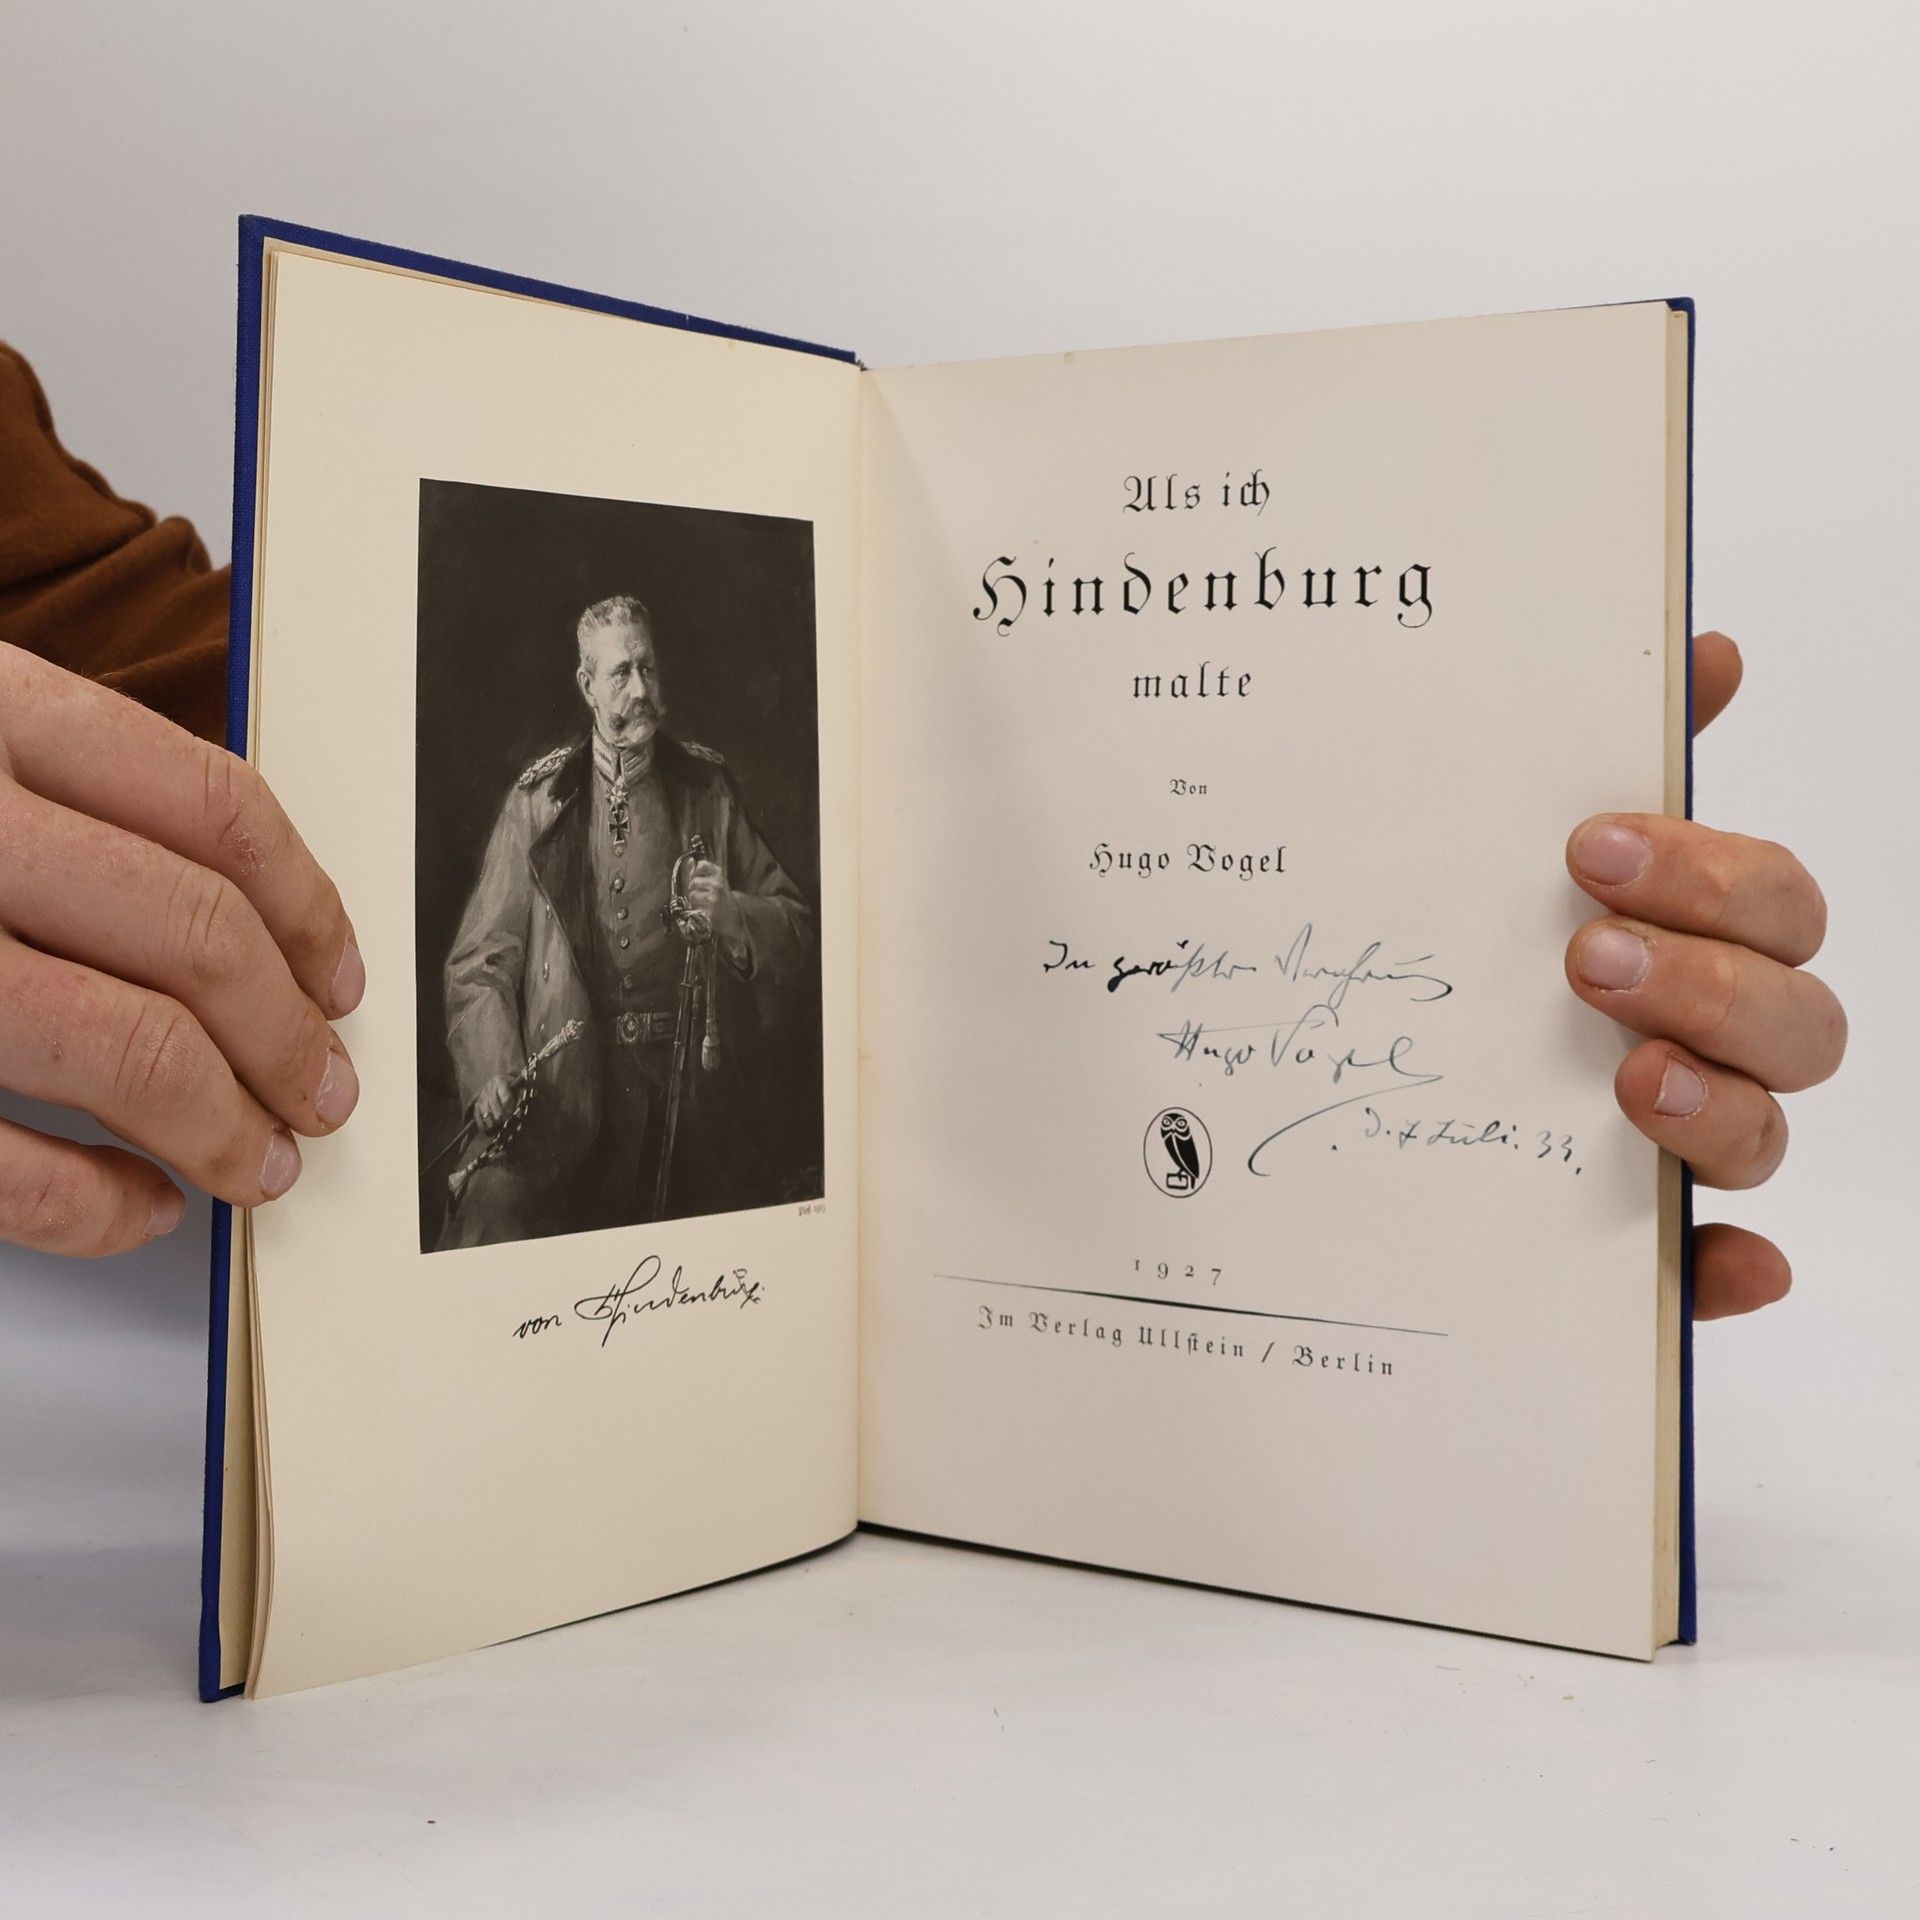 von Hindenburg
Als ich
Hindenburg
malte
Von
Hugo Vogel
In größter Verehrung
Hugo Vogel
d. 7 Juli. 33.
1927
Im Verlag Ullstein / Berlin